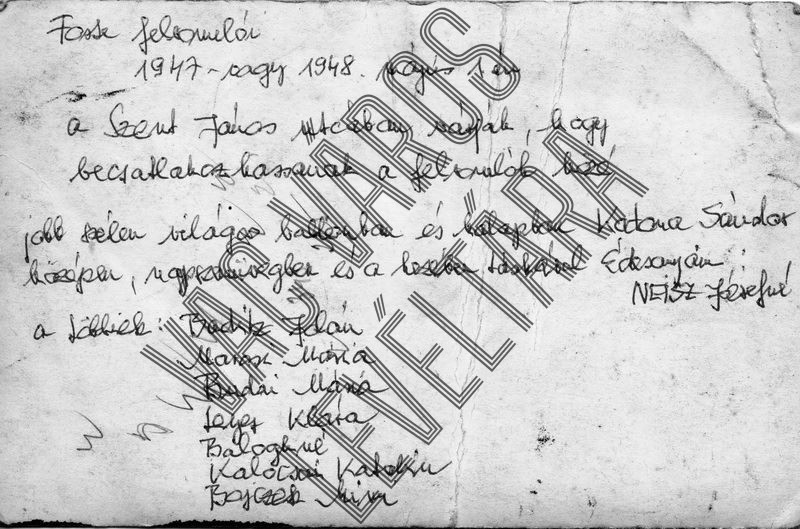 Fossz felvonulói
1947 - vagy 1948. május 1 én
a Szent János utcában várják, hogy
becsatlakozhassanak a felvonulók közé
jobb szélen világos ballonban és kalapban Katona Sándor
középen, napszemüvegben és a kezében táskával Édesanyám
NEISZ Józsefné
a többiek: Buditz Jolán
Marasz Mária
Budai Mária
Klára
Baloghné
Kalocsai Katalin
Bojczek
VÁC VÁROS
LEVÉLTÁRA